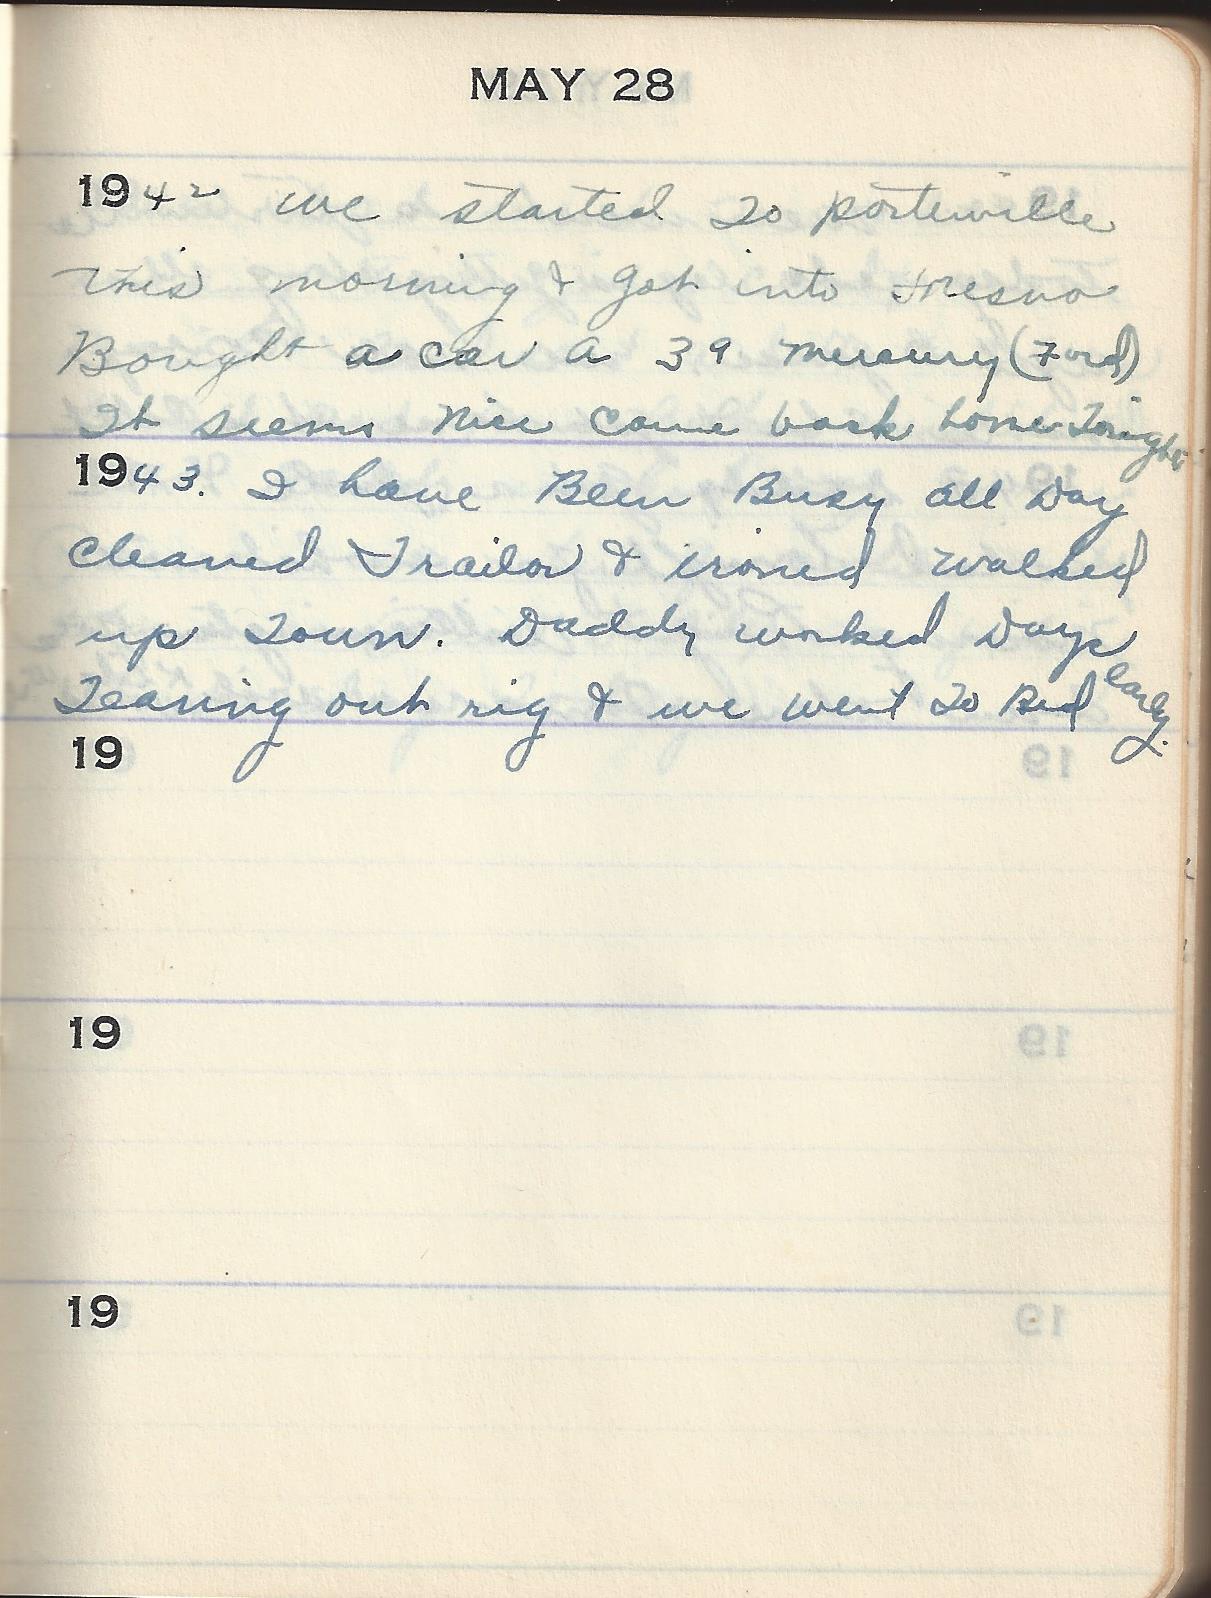 MAY 28
1942 we started To porterville
This morning & got into Fresno
Bought a car a 39 Mercury (Ford)
It seems Nice Came back home Tonight
1943. I have Been Busy all Day
Cleaned Trailor & ironed walked
up Town. Daddy worked Days
Tearing out rig & we went To Bed early.
19
19
19